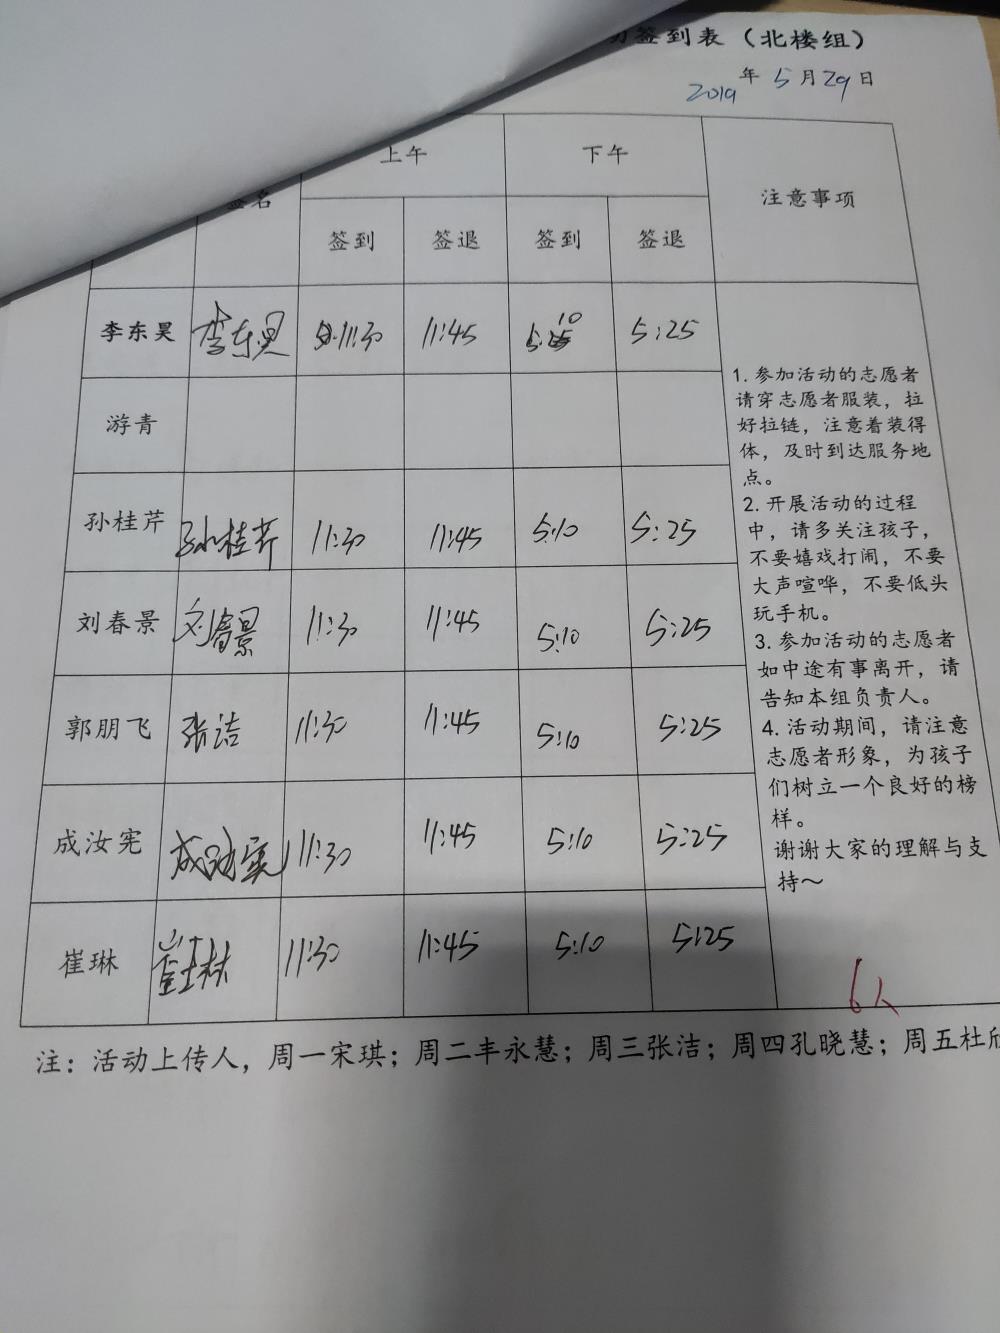 签到表（北楼组）
2019年5月29日
签名 上午 下午 注意事项
签到 签退 签到 签退
李东昊 李东昊 11:30 11:45 5:10 5:25
游青
孙桂芹 孙桂芹 11:30 11:45 5:10 5:25
刘春景 刘春景 11:30 11:45 5:10 5:25
郭朋飞 张洁 11:30 11:45 5:10 5:25
成汝宪 成汝宪 11:30 11:45 5:10 5:25
崔琳 崔琳 11:30 11:45 5:10 5:25
1. 参加活动的志愿者
请穿志愿者服装，拉
好拉链，注意着装得
体，及时到达服务地
点。
2. 开展活动的过程
中，请多关注孩子，
不要嬉戏打闹，不要
大声喧哗，不要低头
玩手机。
3. 参加活动的志愿者
如中途有事离开，请
告知本组负责人。
4. 活动期间，请注意
志愿者形象，为孩子
们树立一个良好的榜
样。
谢谢大家的理解与支
持～
6人
注：活动上传人，周一宋琪；周二丰永慧；周三张洁；周四孔晓慧；周五杜欣